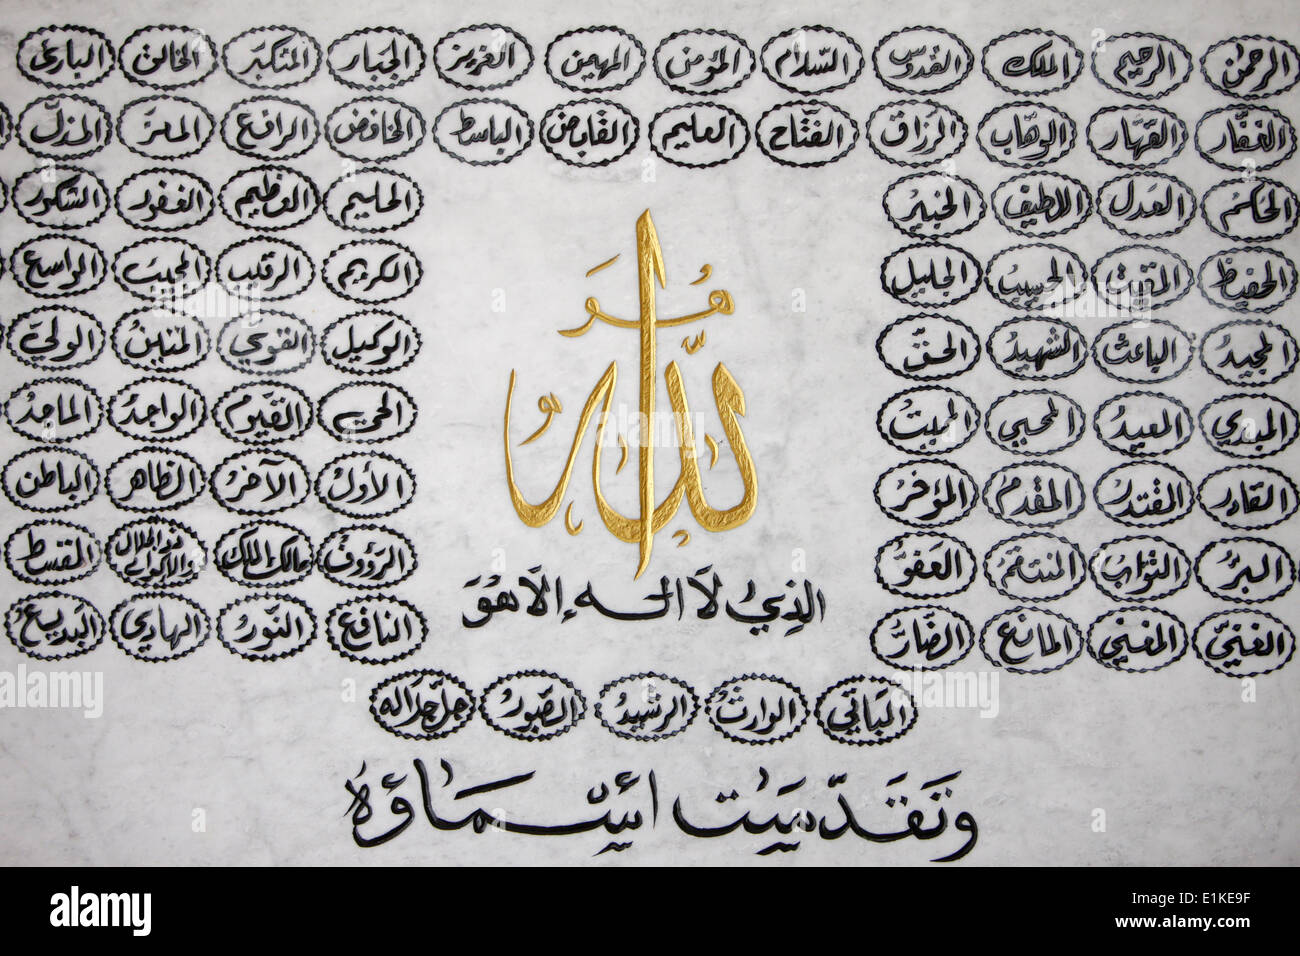 الرحمن الرحيم الملك القدوس السلام المؤمن المهيمن العزيز الجبار المتكبر الخالق البارئ
الغفار القهار الوهاب الرزاق الفتاح العليم القابض الباسط الخافض الرافع المعز المذل
الحكم العدل اللطيف الخبير الحليم العظيم الغفور الشكور
الحفيظ المقيت الحسيب الجليل الكريم الرقيب المجيب الواسع
المجيد الباعث الشهيد الحق الوكيل القوي المتين الولي
المبدي المعيد المحيي المميت الحي القيوم الواجد الماجد
القادر المقتدر المقدم المؤخر الأول الآخر الظاهر الباطن
البر التواب المنتقم العفو الرؤوف مالك الملك ذو الجلال والإكرام المقسط
الغني المغني المانع الضار النافع النور الهادي البديع
هو الله
الذي لا اله إلا هو
الباقي الوارث الرشيد الصبور جل جلاله
وتقدست أسماؤه
alamy
E1KE9F
www.alamy.com